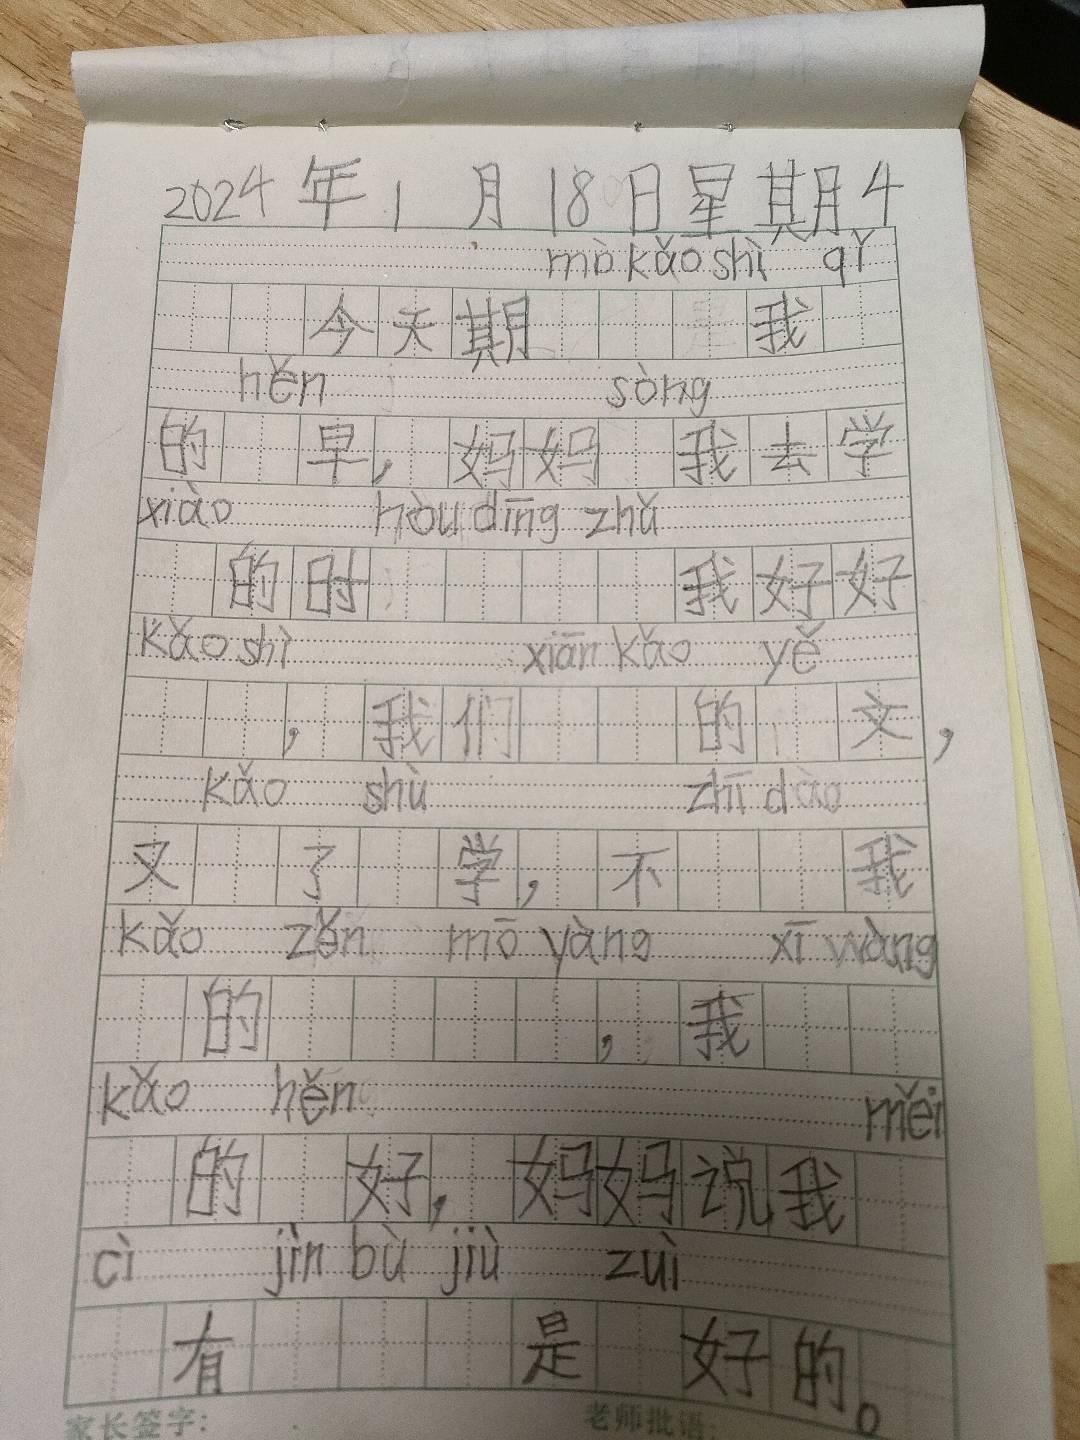 2024年1月18日星期4
mò kǎo shì qǐ
今天期我
hěn sòng
的早,妈妈我去学
xiào hòu dīng zhǔ
的时我好好
kǎo shì xiān kǎo yě
,我们的文,
kǎo shù zhī dào
又了学,不我
kǎo zěn mō yàng xī wàng
的,我
kǎo hěn měi
的好,妈妈说我
cì jìn bù jiù zuì
有是好的。
家长签字: 老师批语: